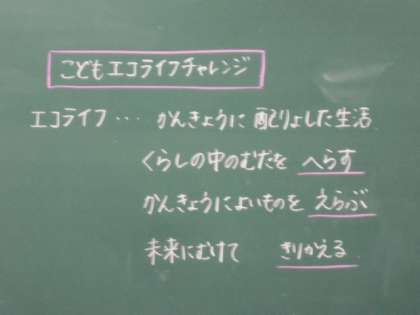 こどもエコライフチャレンジ
エコライフ・・・ かんきょうに配りょした生活
くらしの中のむだを へらす
かんきょうによいものを えらぶ
未来にむけて きりかえる